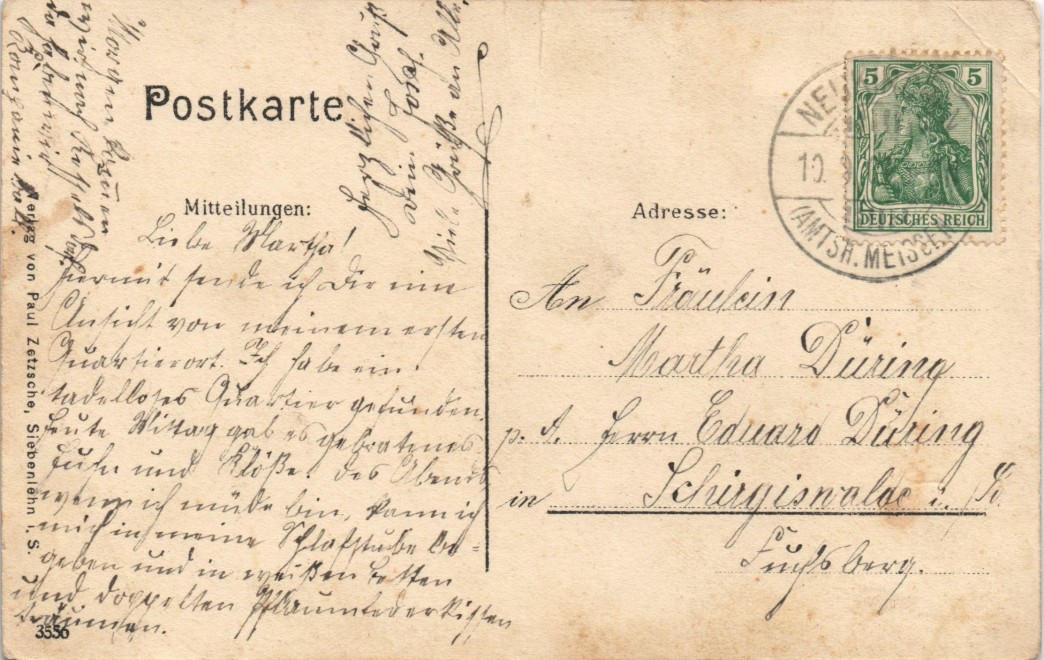 Postkarte.
Mitteilungen:
Liebe Martha!
Hiermit sende ich Dir eine
Ansicht von meinem ersten
Quartierort. Ich habe ein
tadelloses Quartier gefunden,
heute Mittag gab es gebratenes
Huhn und Klöße. Des Abends
wenn ich müde bin, kann ich
mich in meine Schlafstube be-
geben und in weißen Betten
und doppelten Pflaumfederkissen
träumen.
Morgen
wird nach
da haben wir
Herzlichen Gruß
Dein
Viele Grüße an
Adresse:
An Fräulein
Martha Düring
p. A. Herrn Eduard Düring
in Schirgiswalde i. S.
Fuchsberg.
5 5
DEUTSCHES REICH
10.
(AMTSH. MEISSEN)
Verlag von Paul Zetzsche, Siebenlehn i. S.
3556